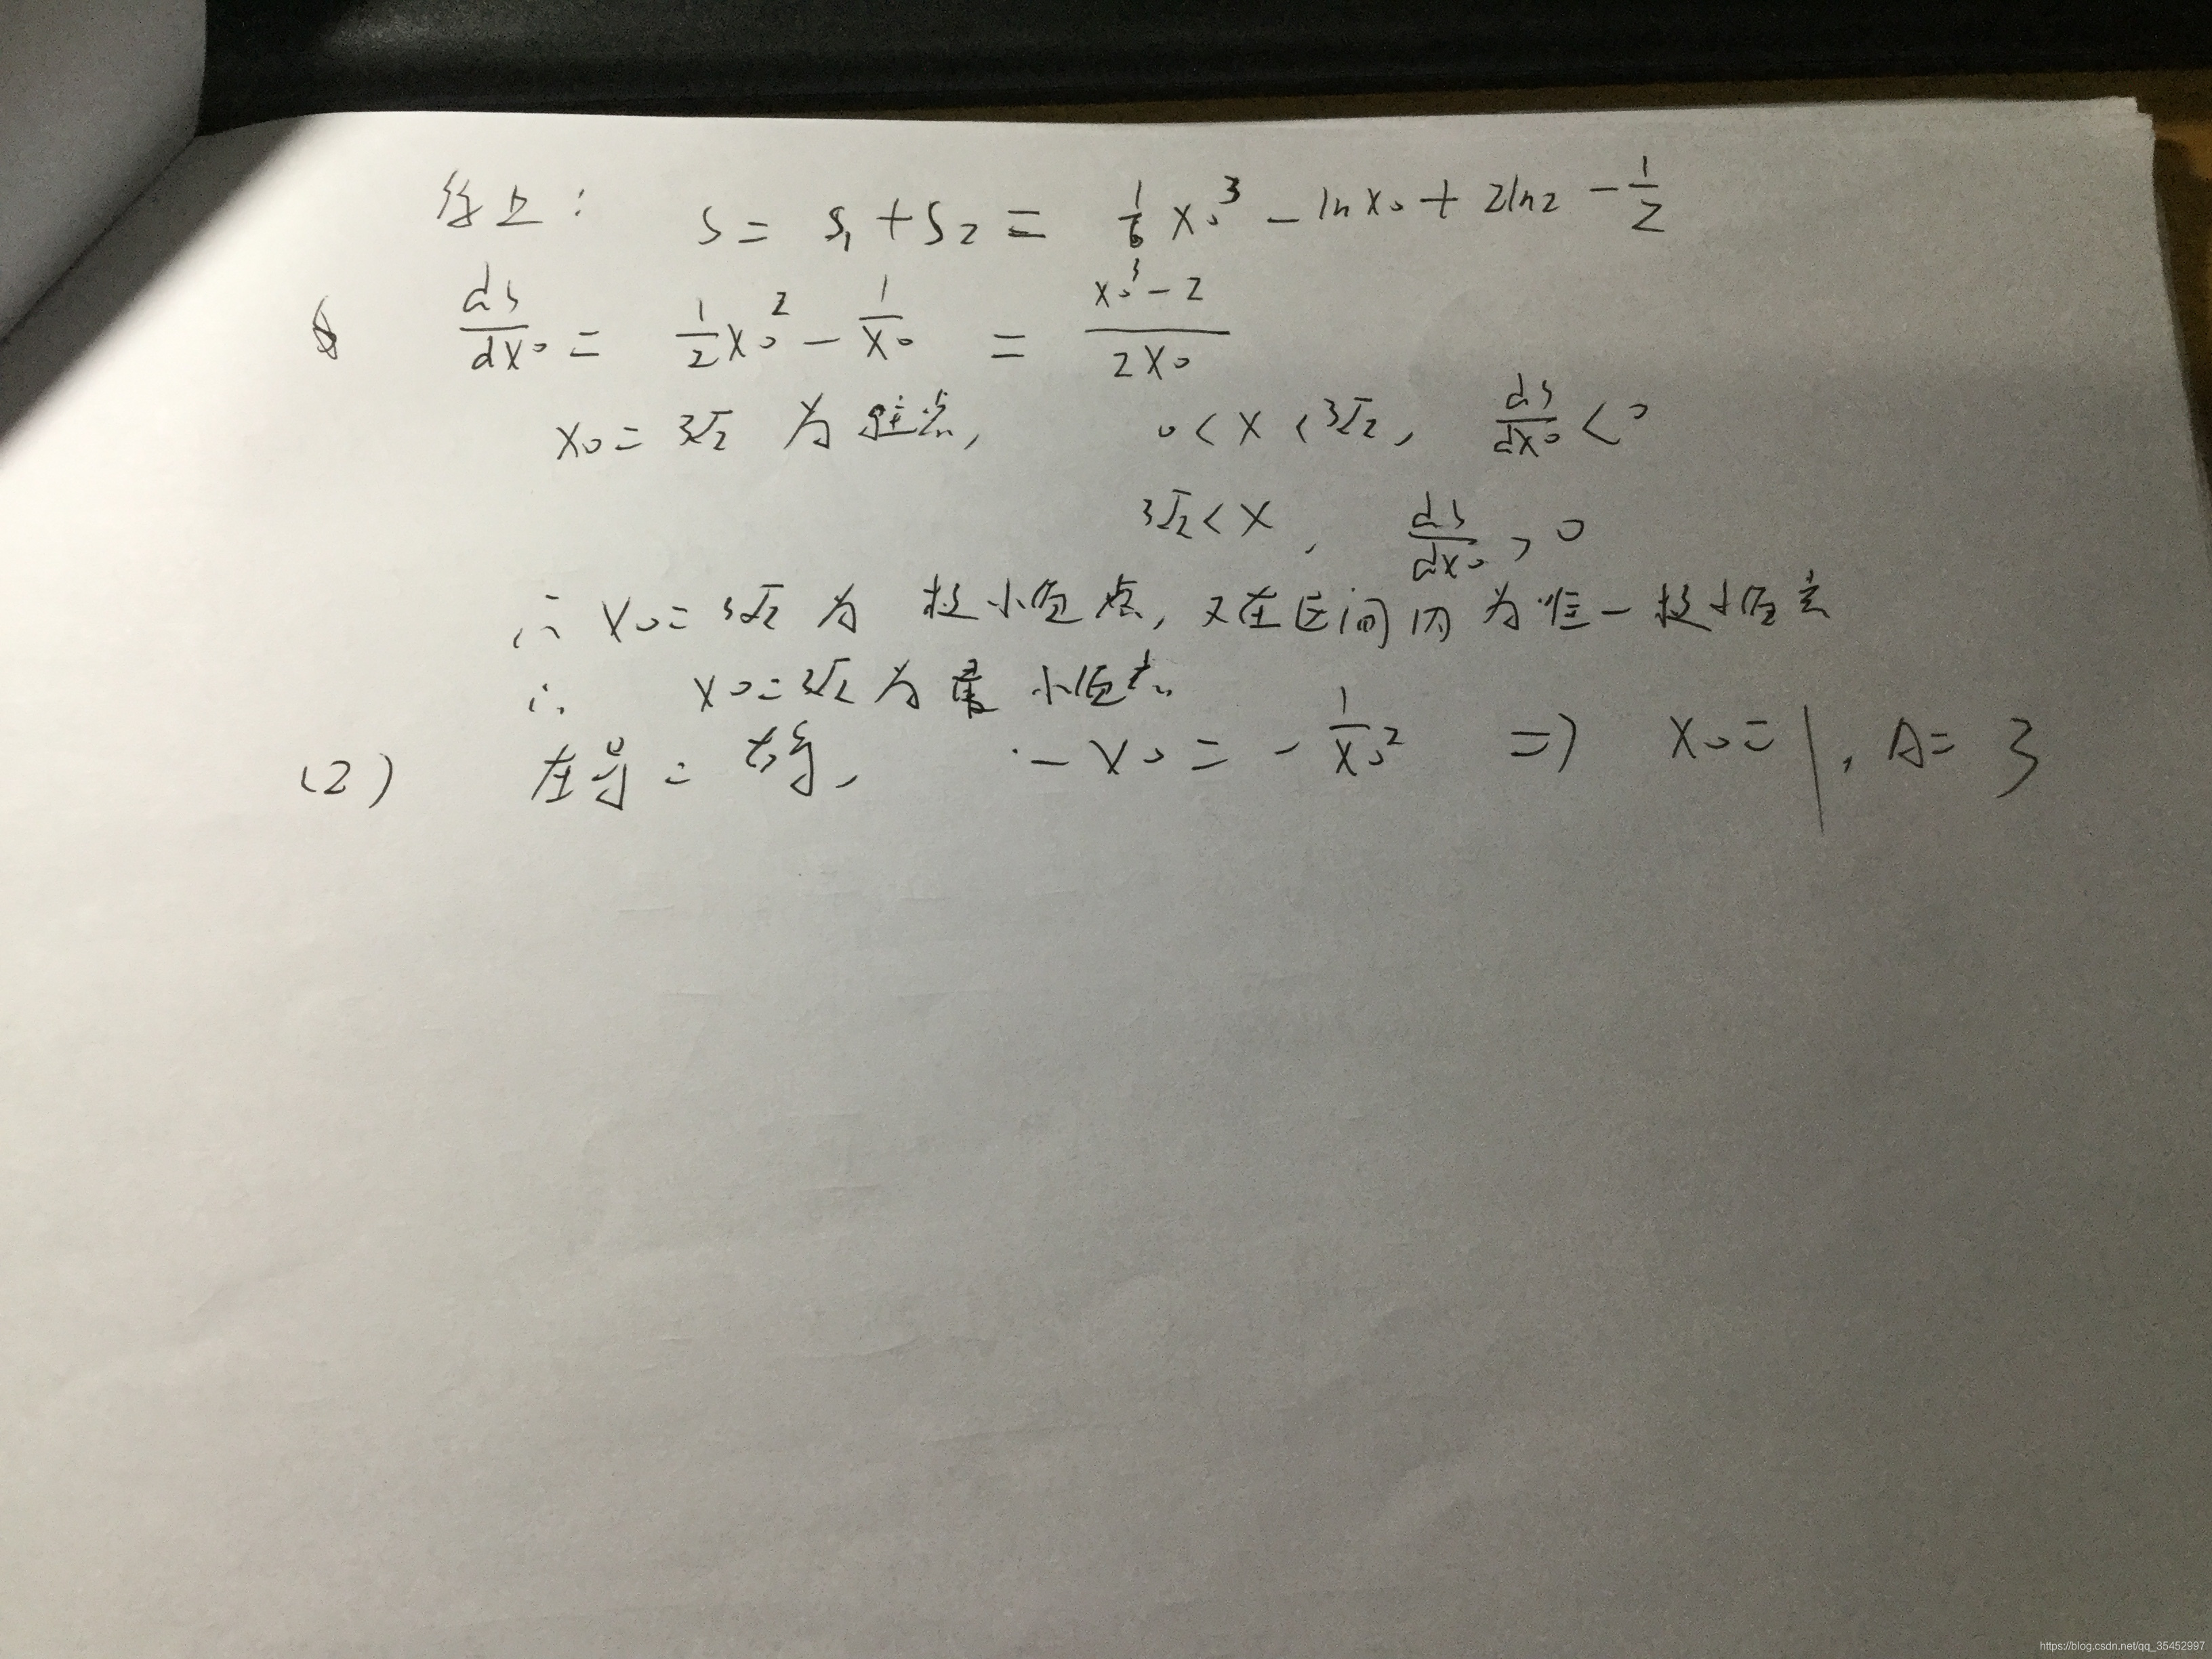 综上: S = S₁ + S₂ = 1/6 x₀³ - ln x₀ + 2ln2 - 1/2
ds/dx₀ = 1/2 x₀² - 1/x₀ = (x₀³ - 2)/(2x₀)
x₀ = ³√2 为驻点, 0 < x < ³√2, ds/dx₀ < 0
³√2 < x, ds/dx₀ > 0
∴ x₀ = ³√2 为极小值点, 又在区间内为唯一极小值点
∴ x₀ = ³√2 为最小值点
(2) 左导 = 右导, -x₀ = -1/x₀² ⇒ x₀ = 1, A = 3
https://blog.csdn.net/qq_35452997